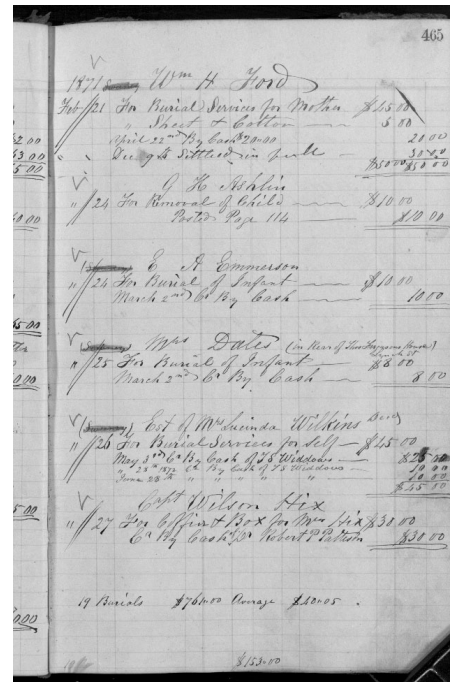 465
1871 Wm H. Ford
Feb 21 For Burial Services for Mother $45.00
" Sheet & Cotton 5 00
April 22nd By Cash $20.00 20.00
" " Dec 9th Settled in full 30.00
$50.00 $50.00
G H Ashlin
" 24 For Removal of Child $10.00
Posted Page 114 $10.00
E. A Emmerson
" 24 For Burial of Infant $10.00
March 2nd Cr By Cash 10.00
Mrs Dates (in Rear of Thos Furgesons House)
" 25 For Burial of Infant $8.00
March 2nd Cr By Cash 8 00
Est of Mrs Lucinda Wilkins Decd
" 26 For Burial Services for Self $45.00
May 3rd Cr By Cash of T S Widdows $25.00
" 28th 1872 Cr By Cash of T S Widdows 10 00
June 28th " " " " " 10 00
$45 00
Capt Wilson Hix
" 27 For Coffin & Box for Mrs Hix $30.00
Cr By Cash pr Robert P Patteson $30.00
19 Burials $761.00 Average $40.05
$153.00